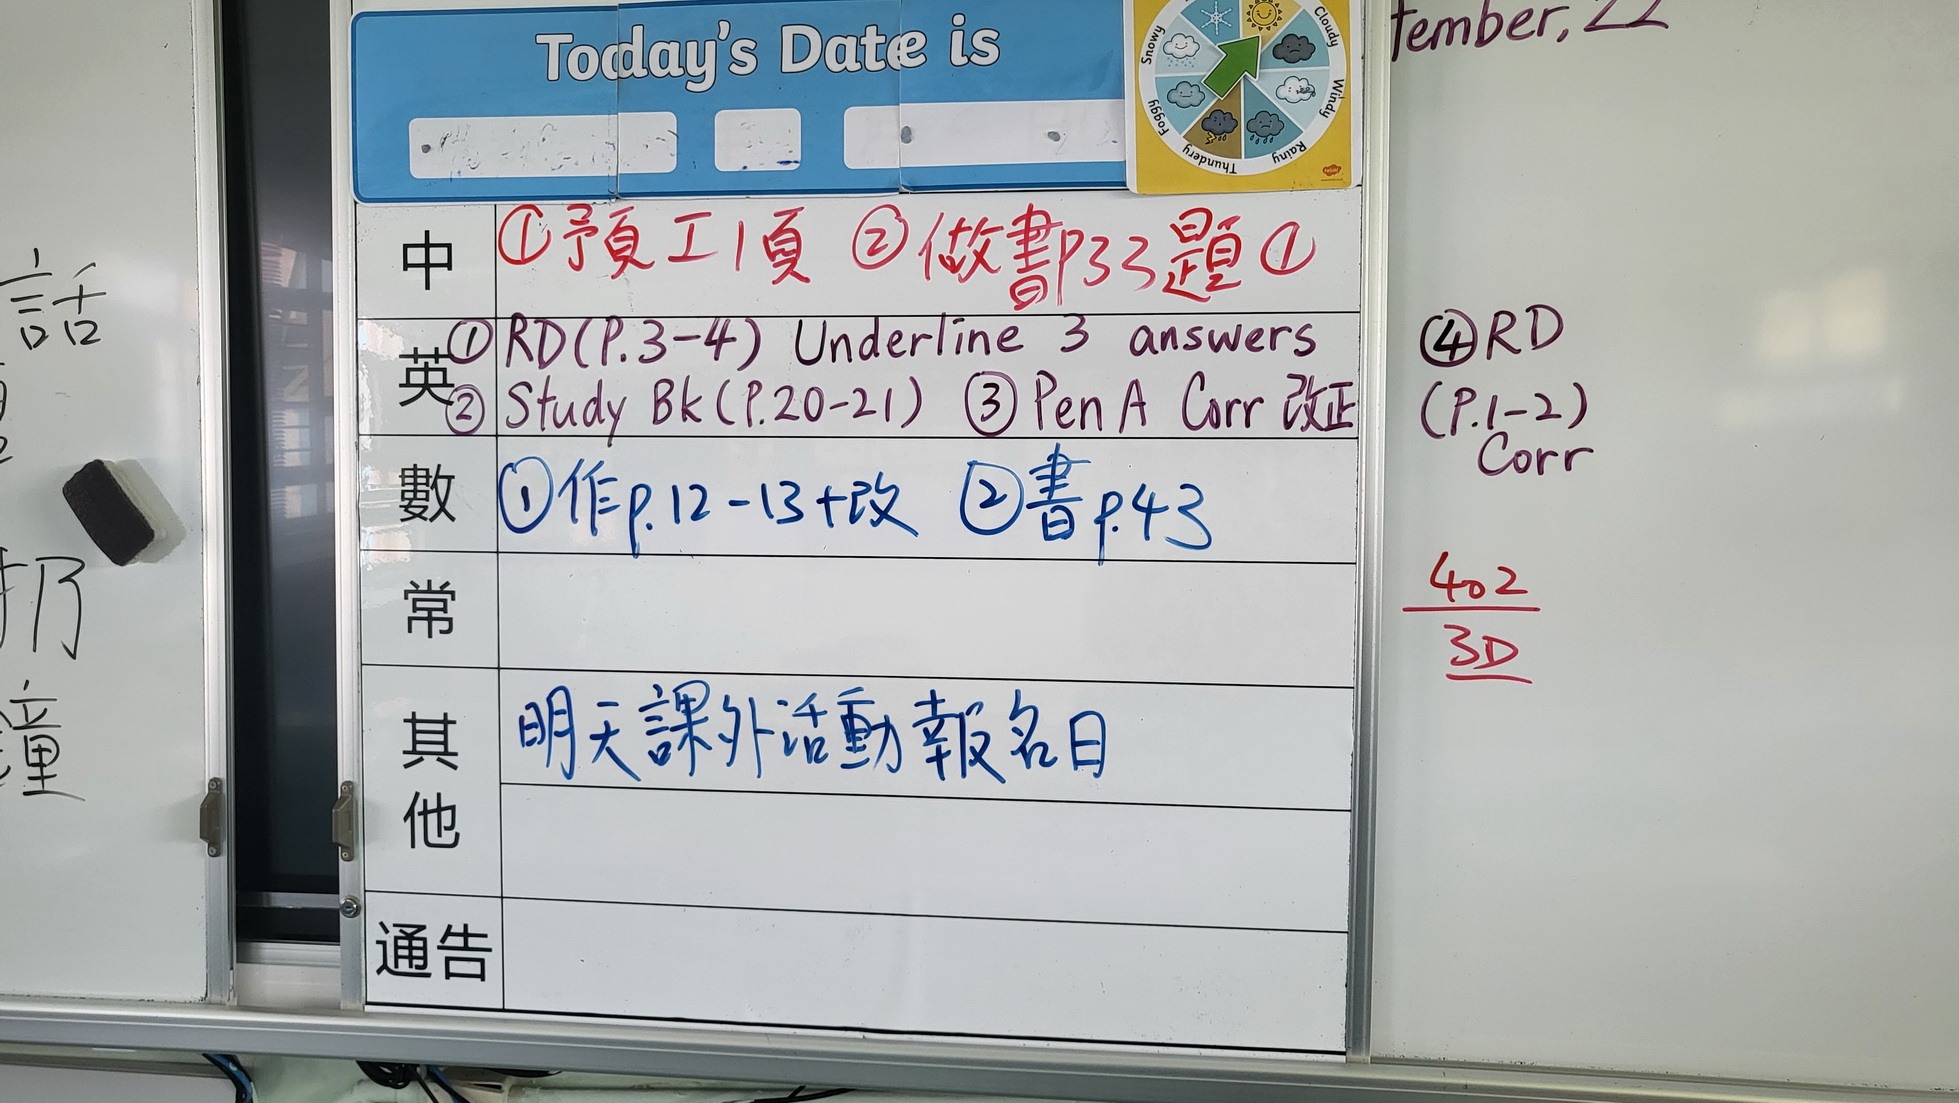 Today's Date is
Snowy
Cloudy
Windy
Rainy
Thundery
Foggy
tember, 22
中 ①預工1頁 ②做書P33題①
英 ①RD(P.3-4) Underline 3 answers
②Study Bk(P.20-21) ③Pen A Corr 改正
④RD
(P.1-2)
Corr
數 ①作p.12-13+改 ②書p.43
常
402
3D
其他 明天課外活動報名日
通告
話
扔
鐘